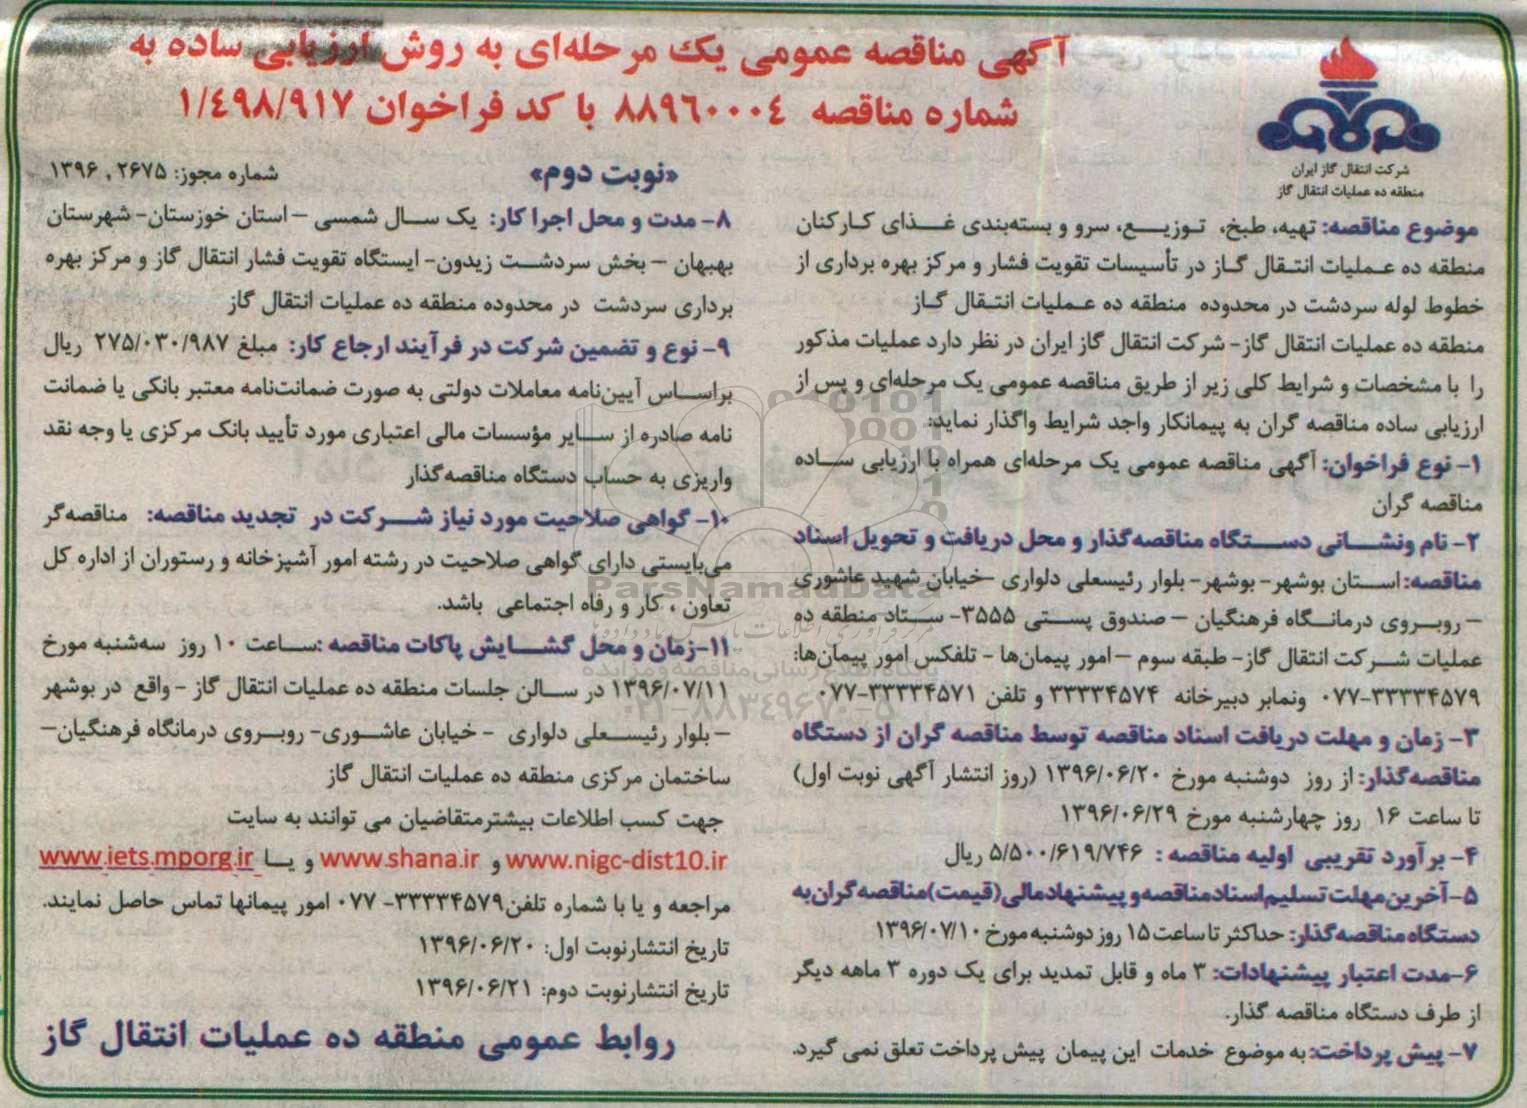 آگهی مناقصه عمومی یک مرحله‌ای به روش ارزیابی ساده به
شماره مناقصه ۸۸۹۶۰۰۰۴ با کد فراخوان ۱/۴۹۸/۹۱۷
شرکت انتقال گاز ایران
منطقه ده عملیات انتقال گاز
«نوبت دوم»
شماره مجوز: ۲۶۷۵ , ۱۳۹۶
موضوع مناقصه: تهیه، طبخ، توزیع، سرو و بسته‌بندی غذای کارکنان
منطقه ده عملیات انتقال گاز در تأسیسات تقویت فشار و مرکز بهره برداری از
خطوط لوله سردشت در محدوده منطقه ده عملیات انتقال گاز
منطقه ده عملیات انتقال گاز- شرکت انتقال گاز ایران در نظر دارد عملیات مذکور
را با مشخصات و شرایط کلی زیر از طریق مناقصه عمومی یک مرحله‌ای و پس از
ارزیابی ساده مناقصه گران به پیمانکار واجد شرایط واگذار نماید:
۱- نوع فراخوان: آگهی مناقصه عمومی یک مرحله‌ای همراه با ارزیابی ساده
مناقصه گران
۲- نام ونشانی دستگاه مناقصه‌گذار و محل دریافت و تحویل اسناد
مناقصه: استان بوشهر- بوشهر- بلوار رئیسعلی دلواری –خیابان شهید عاشوری
– روبروی درمانگاه فرهنگیان – صندوق پستی ۳۵۵۵- ستاد منطقه ده
عملیات شرکت انتقال گاز- طبقه سوم –امور پیمان‌ها - تلفکس امور پیمان‌ها:
۰۷۷-۳۳۳۳۴۵۷۹ ونمابر دبیرخانه ۳۳۳۳۴۵۷۴ و تلفن ۳۳۳۳۴۵۷۱-۰۷۷
۳- زمان و مهلت دریافت اسناد مناقصه توسط مناقصه گران از دستگاه
مناقصه‌گذار: از روز دوشنبه مورخ ۱۳۹۶/۰۶/۲۰ (روز انتشار آگهی نوبت اول)
تا ساعت ۱۶ روز چهارشنبه مورخ ۱۳۹۶/۰۶/۲۹
۴- برآورد تقریبی اولیه مناقصه : ۵/۵۰۰/۶۱۹/۷۴۶ ریال
۵-آخرین مهلت تسلیم اسناد مناقصه و پیشنهاد مالی (قیمت) مناقصه گران به
دستگاه مناقصه گذار: حداکثر تا ساعت ۱۵ روز دوشنبه مورخ ۱۳۹۶/۰۷/۱۰
۶-مدت اعتبار پیشنهادات: ۳ ماه و قابل تمدید برای یک دوره ۳ ماهه دیگر
از طرف دستگاه مناقصه گذار.
۷- پیش پرداخت: به موضوع خدمات این پیمان پیش پرداخت تعلق نمی گیرد.
۸- مدت و محل اجرا کار: یک سال شمسی – استان خوزستان- شهرستان
بهبهان – بخش سردشت زیدون- ایستگاه تقویت فشار انتقال گاز و مرکز بهره
برداری سردشت در محدوده منطقه ده عملیات انتقال گاز
۹- نوع و تضمین شرکت در فرآیند ارجاع کار: مبلغ ۲۷۵/۰۳۰/۹۸۷ ریال
براساس آیین‌نامه معاملات دولتی به صورت ضمانت‌نامه معتبر بانکی یا ضمانت
نامه صادره از سایر مؤسسات مالی اعتباری مورد تأیید بانک مرکزی یا وجه نقد
واریزی به حساب دستگاه مناقصه‌گذار
۱۰- گواهی صلاحیت مورد نیاز شرکت در تجدید مناقصه: مناقصه‌گر
می‌بایستی دارای گواهی صلاحیت در رشته امور آشپزخانه و رستوران از اداره کل
تعاون ، کار و رفاه اجتماعی باشد.
۱۱-زمان و محل گشایش پاکات مناقصه :ساعت ۱۰ روز سه‌شنبه مورخ
۱۳۹۶/۰۷/۱۱ در سالن جلسات منطقه ده عملیات انتقال گاز - واقع در بوشهر
– بلوار رئیسعلی دلواری - خیابان عاشوری- روبروی درمانگاه فرهنگیان–
ساختمان مرکزی منطقه ده عملیات انتقال گاز
جهت کسب اطلاعات بیشترمتقاضیان می توانند به سایت
www.nigc-dist10.ir و www.shana.ir و یا www.iets.mporg.ir
مراجعه و یا با شماره تلفن۳۳۳۳۴۵۷۹- ۰۷۷ امور پیمانها تماس حاصل نمایند.
تاریخ انتشارنوبت اول: ۱۳۹۶/۰۶/۲۰
تاریخ انتشارنوبت دوم: ۱۳۹۶/۰۶/۲۱
روابط عمومی منطقه ده عملیات انتقال گاز
ParsNamadData